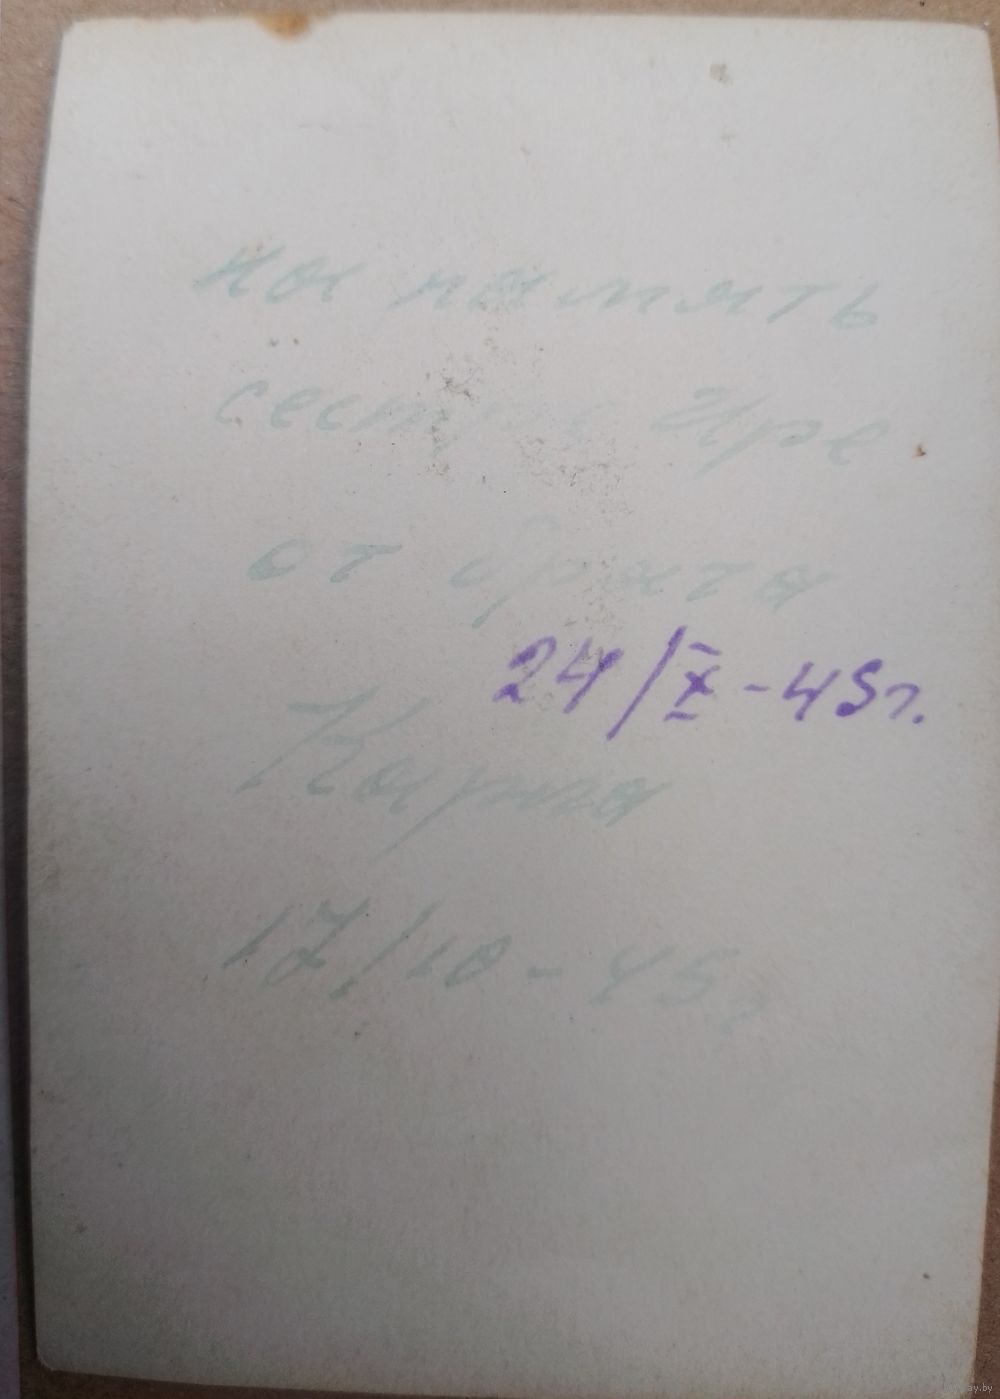 на память
сестре Ире
от брата
24/X-45г.
Карла
17/10-45г
ay.by